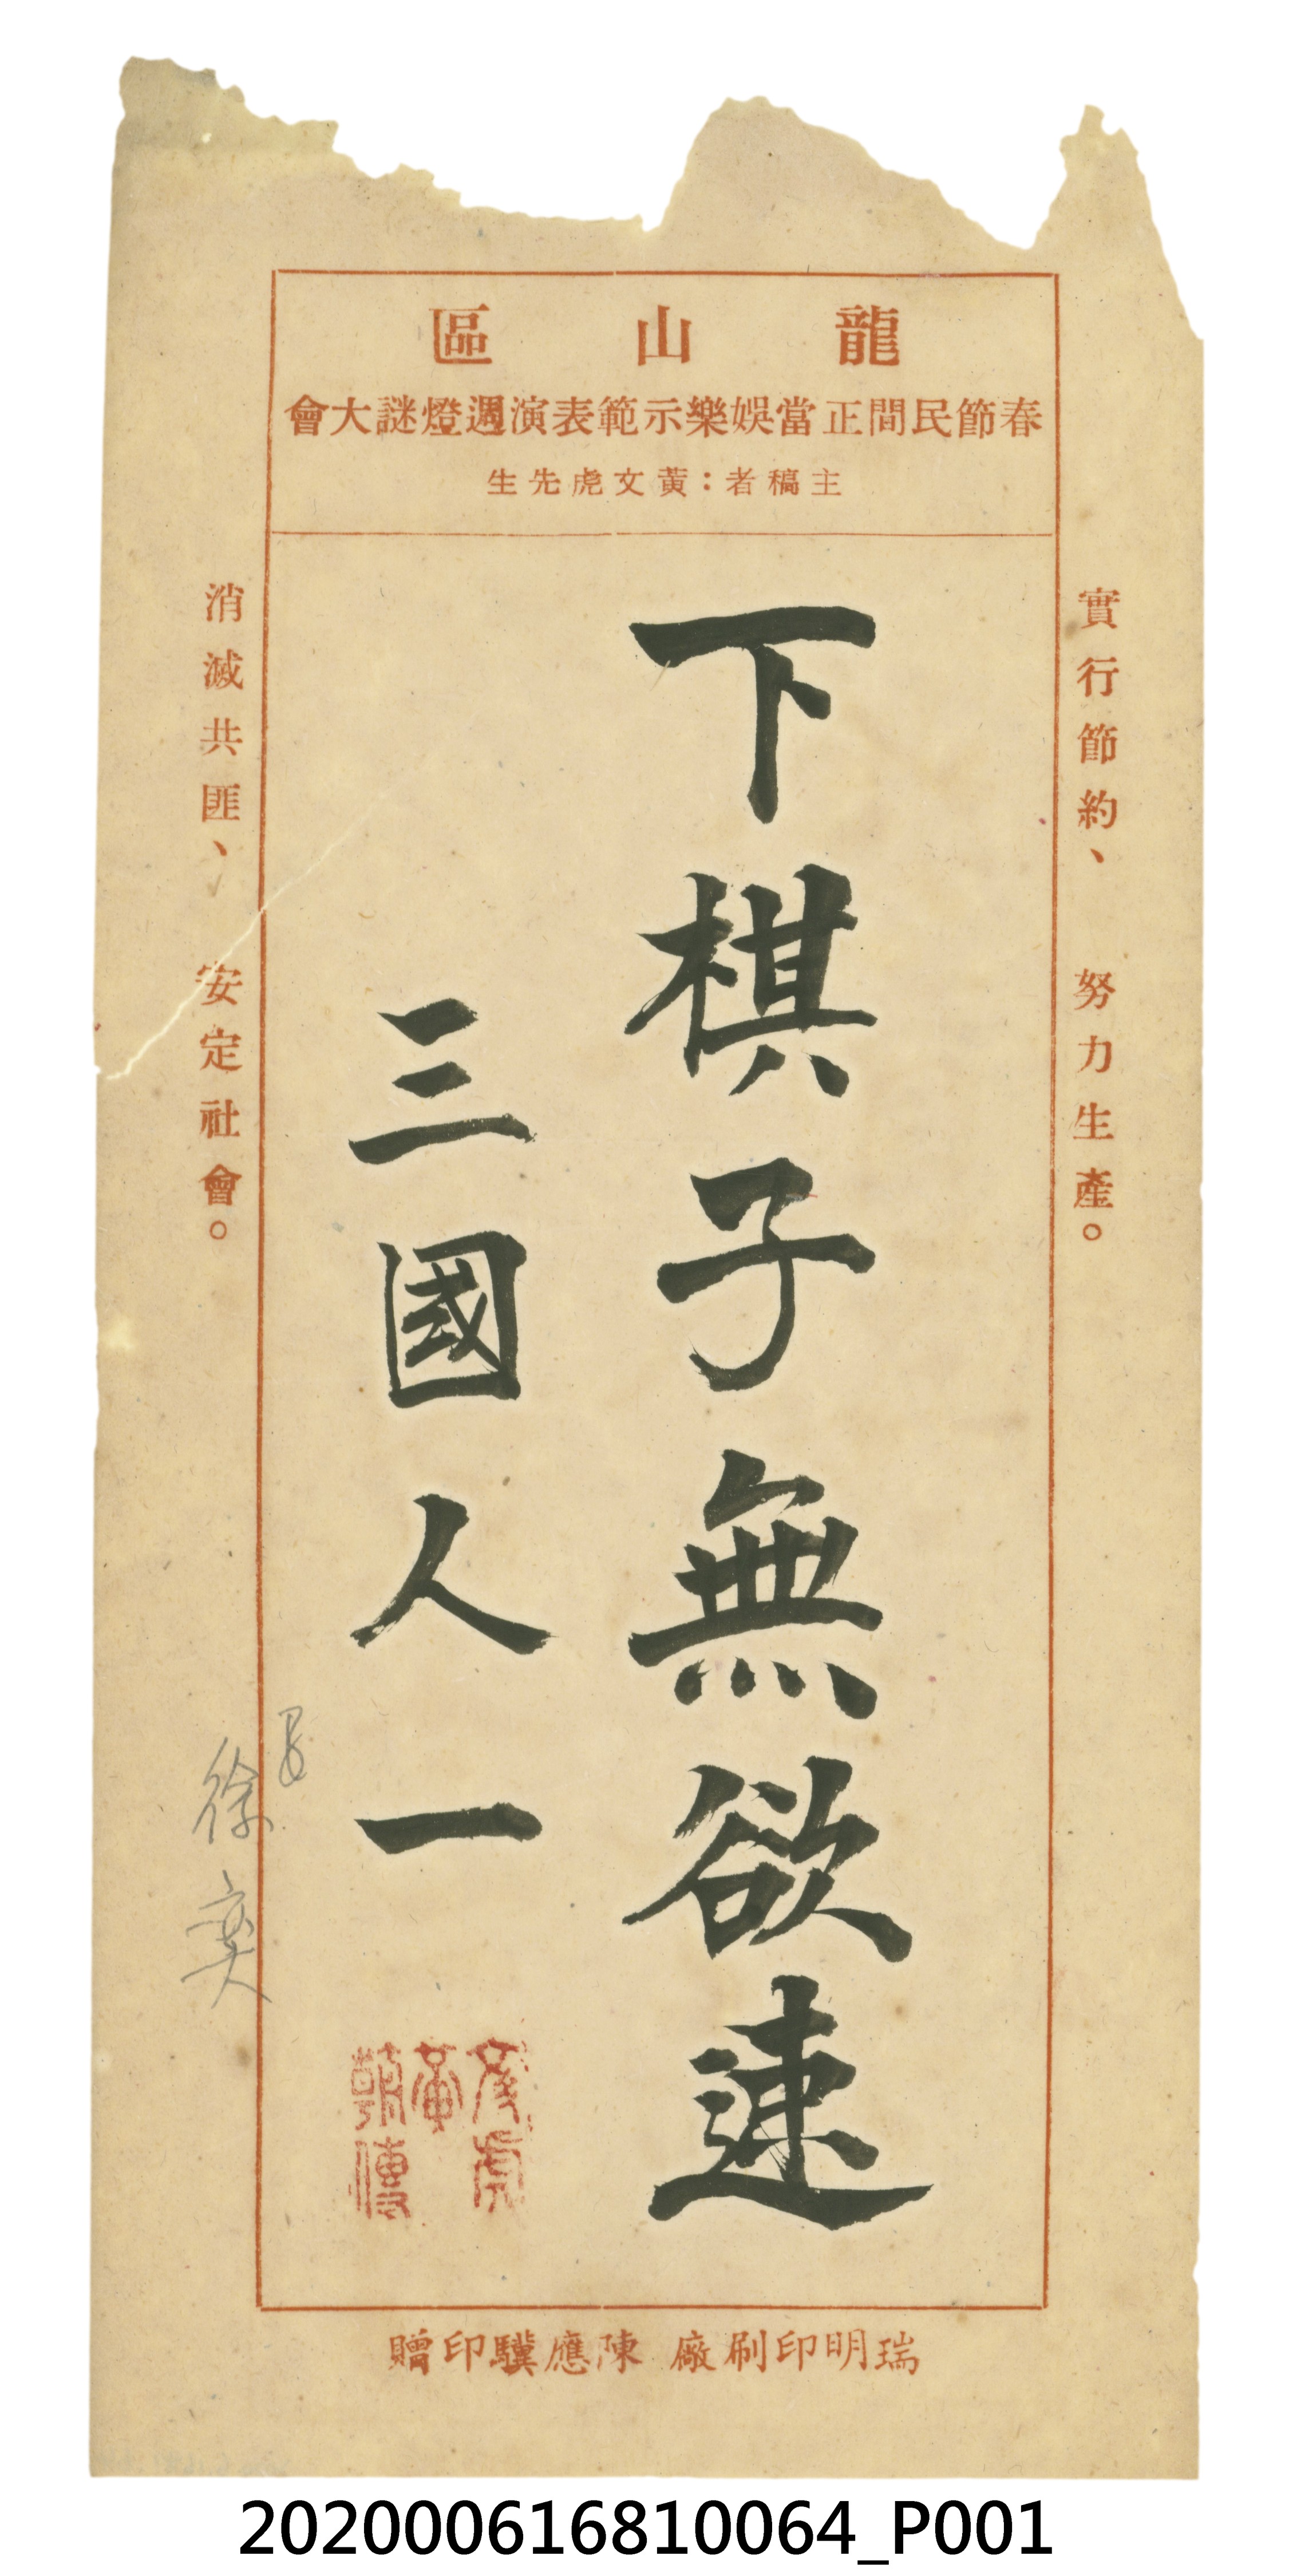 龍山區
春節民間正當娛樂示範表演週燈謎大會
主稿者：黃文虎先生
實行節約、努力生產。
下棋子無欲速
三國人一
消滅共匪、安定社會。
徐奕
文虎
黃
朝傳
瑞明印刷廠 陳應驥印贈
202000616810064_P001